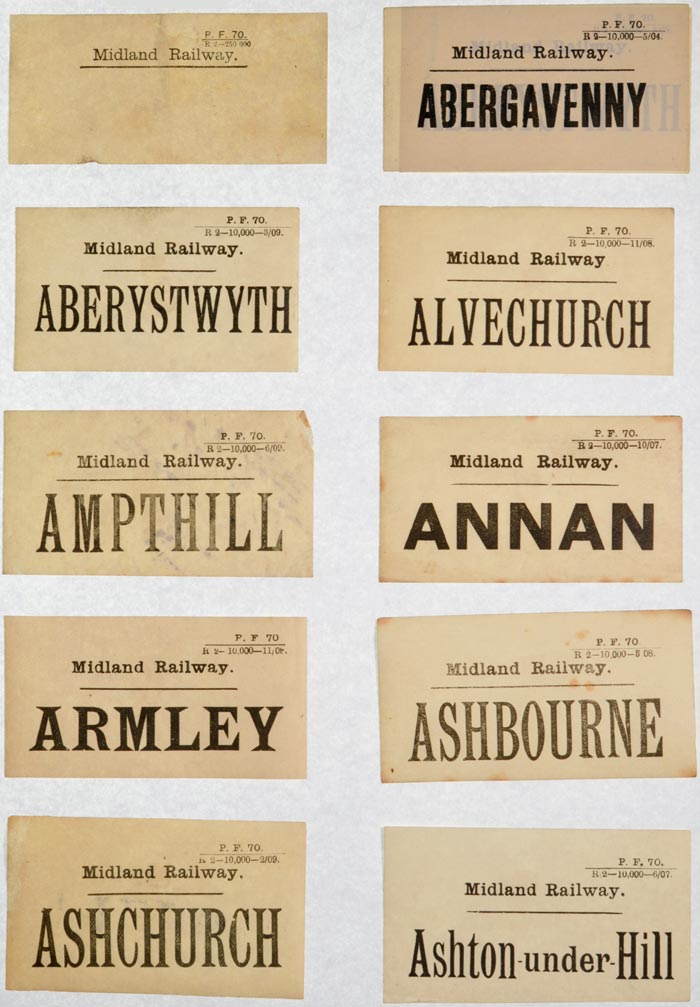 P. F. 70.
R 2—250 000
Midland Railway.
P. F. 70.
R 2—10,000—5/04.
Midland Railway.
ABERGAVENNY
P. F. 70.
R 2—10,000—3/09.
Midland Railway.
ABERYSTWYTH
P. F. 70.
R 2—10,000—11/08.
Midland Railway
ALVECHURCH
P. F. 70.
R 2—10,000—6/09.
Midland Railway.
AMPTHILL
P. F. 70.
R 2—10,000—10/07.
Midland Railway.
ANNAN
P. F 70
R 2—10,000—11/08.
Midland Railway.
ARMLEY
P. F. 70
R 2—10,000—8 08.
Midland Railway.
ASHBOURNE
P. F. 70.
R 2—10,000—2/09.
Midland Railway.
ASHCHURCH
P. F. 70.
R 2—10,000—6/07.
Midland Railway.
Ashton-under-Hill